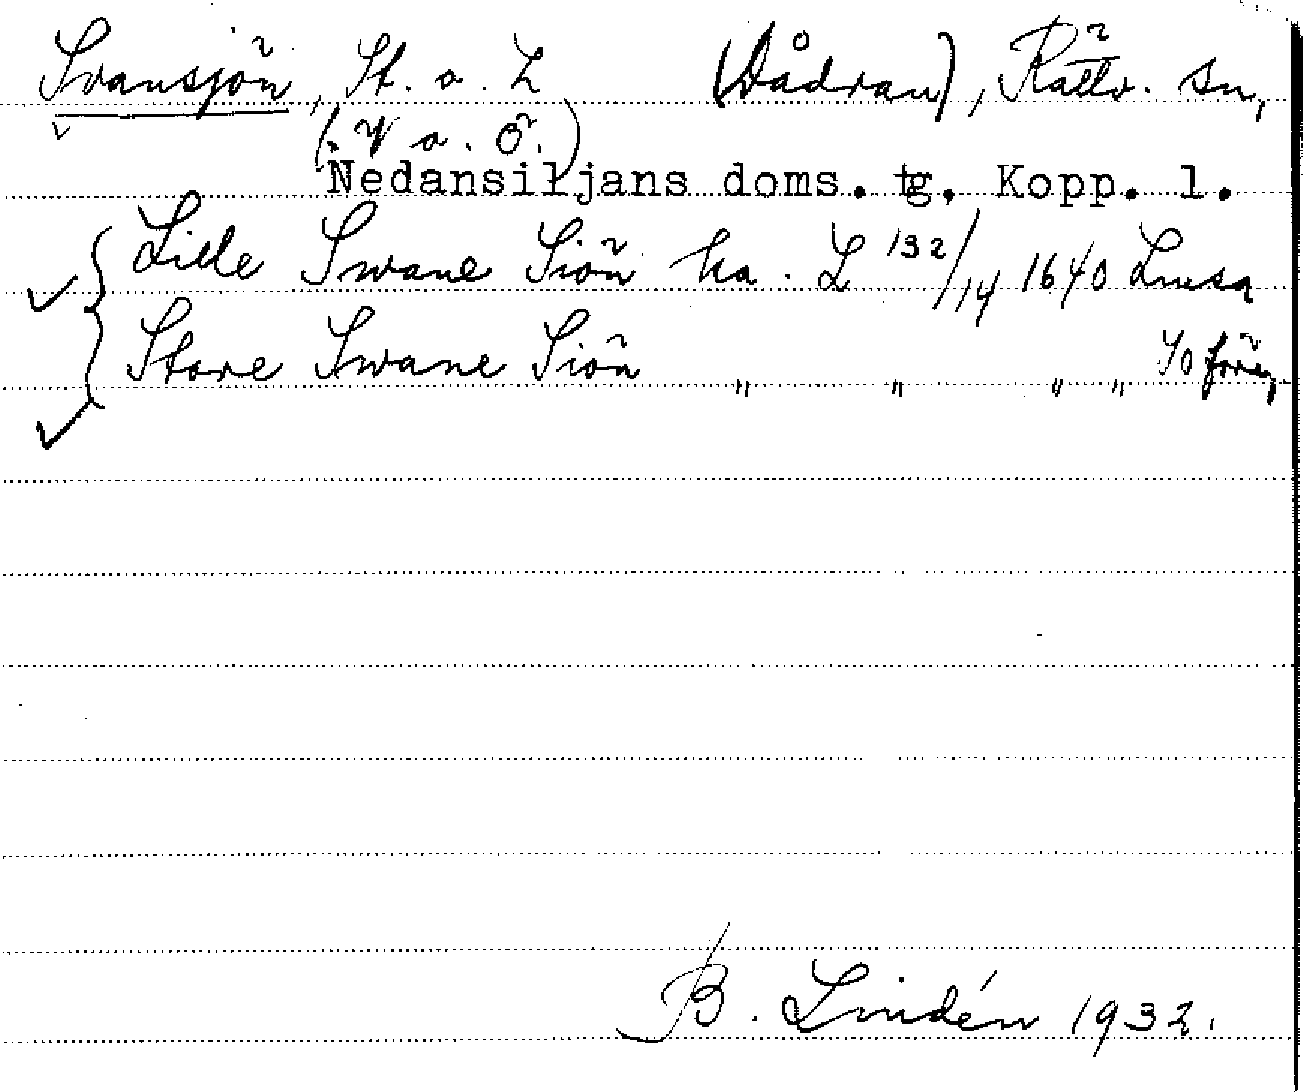 Svansjön, St. o. L (Dådran), Rättv. sn,
(: V o. Ö.)
Nedansiljans doms. tg. Kopp. l.
Lille Swane Siön ka. L 132/14 1640
Store Swane Siön " " " " föreg.
B. Lindén 1932.